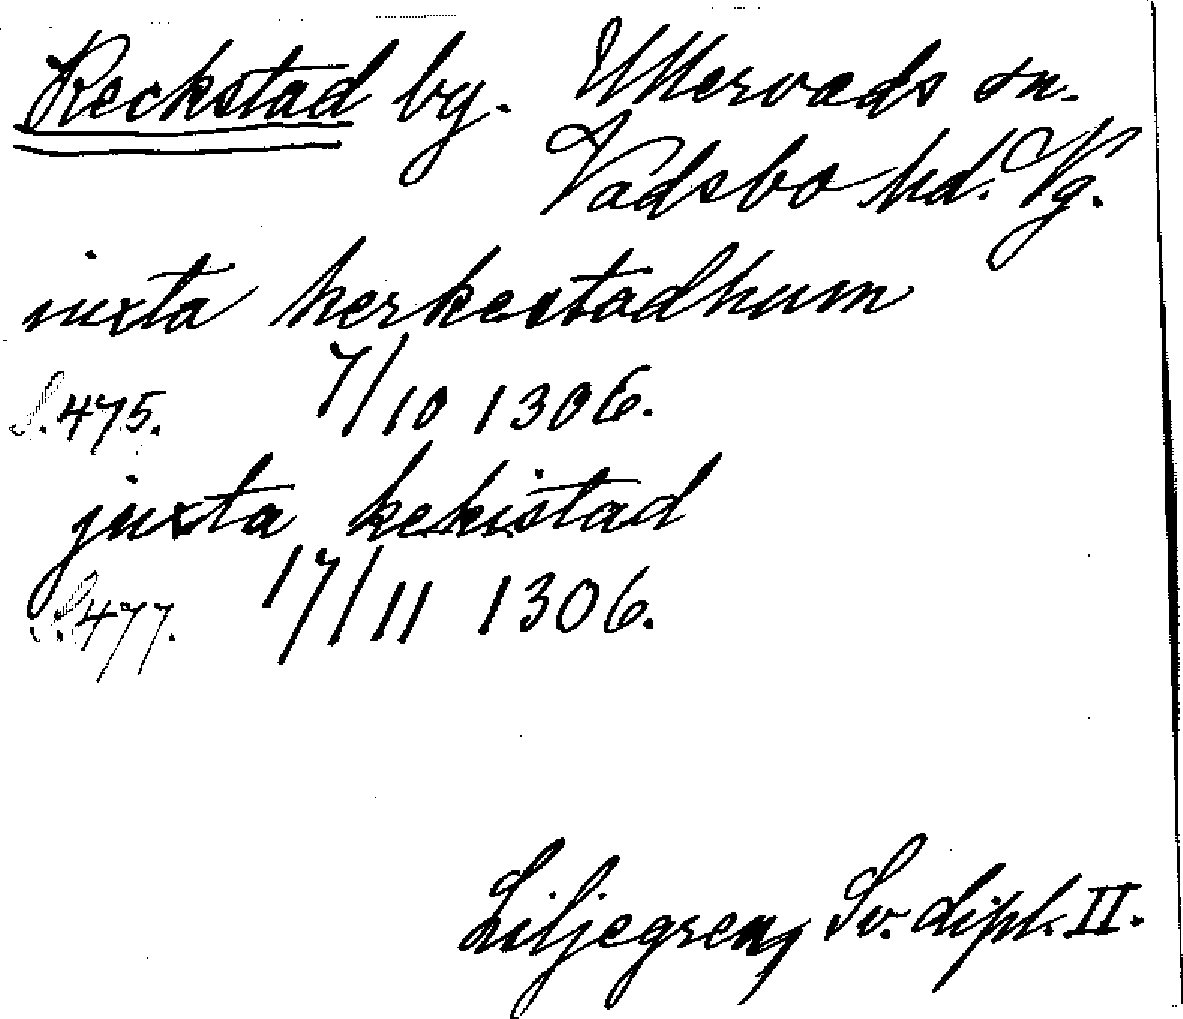 Reckstad by. Ullervads sn.
Vadsbo hd. Vg.
iuxta herkestadhum
S. 475. 7/10 1306.
juxta kekistad
S. 477. 17/11 1306.
Liljegren, Sv. dipl. II.